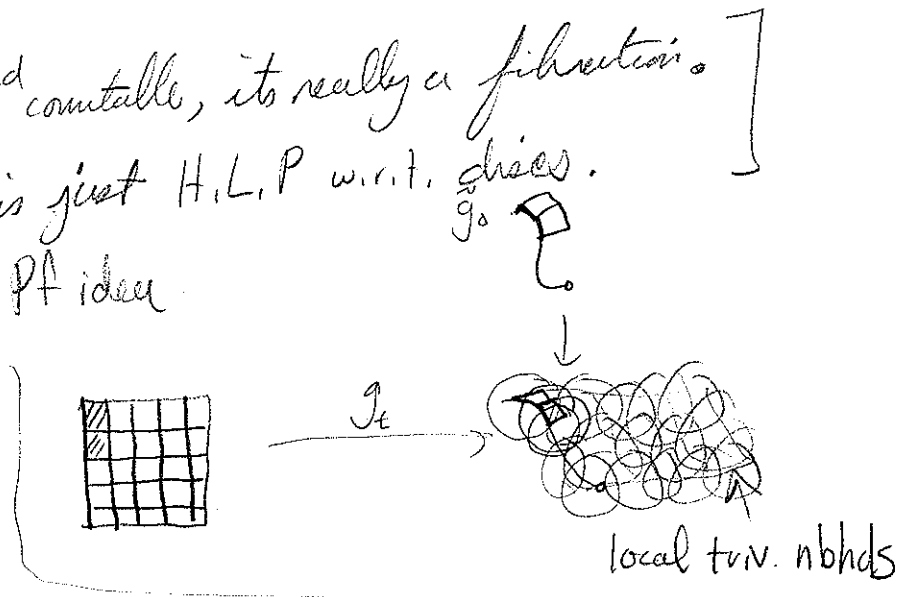 countable, its really a fibration.]
is just H.L.P w.r.t. discs.
g̃₀
Pf idea
g_t
local triv. nbhds